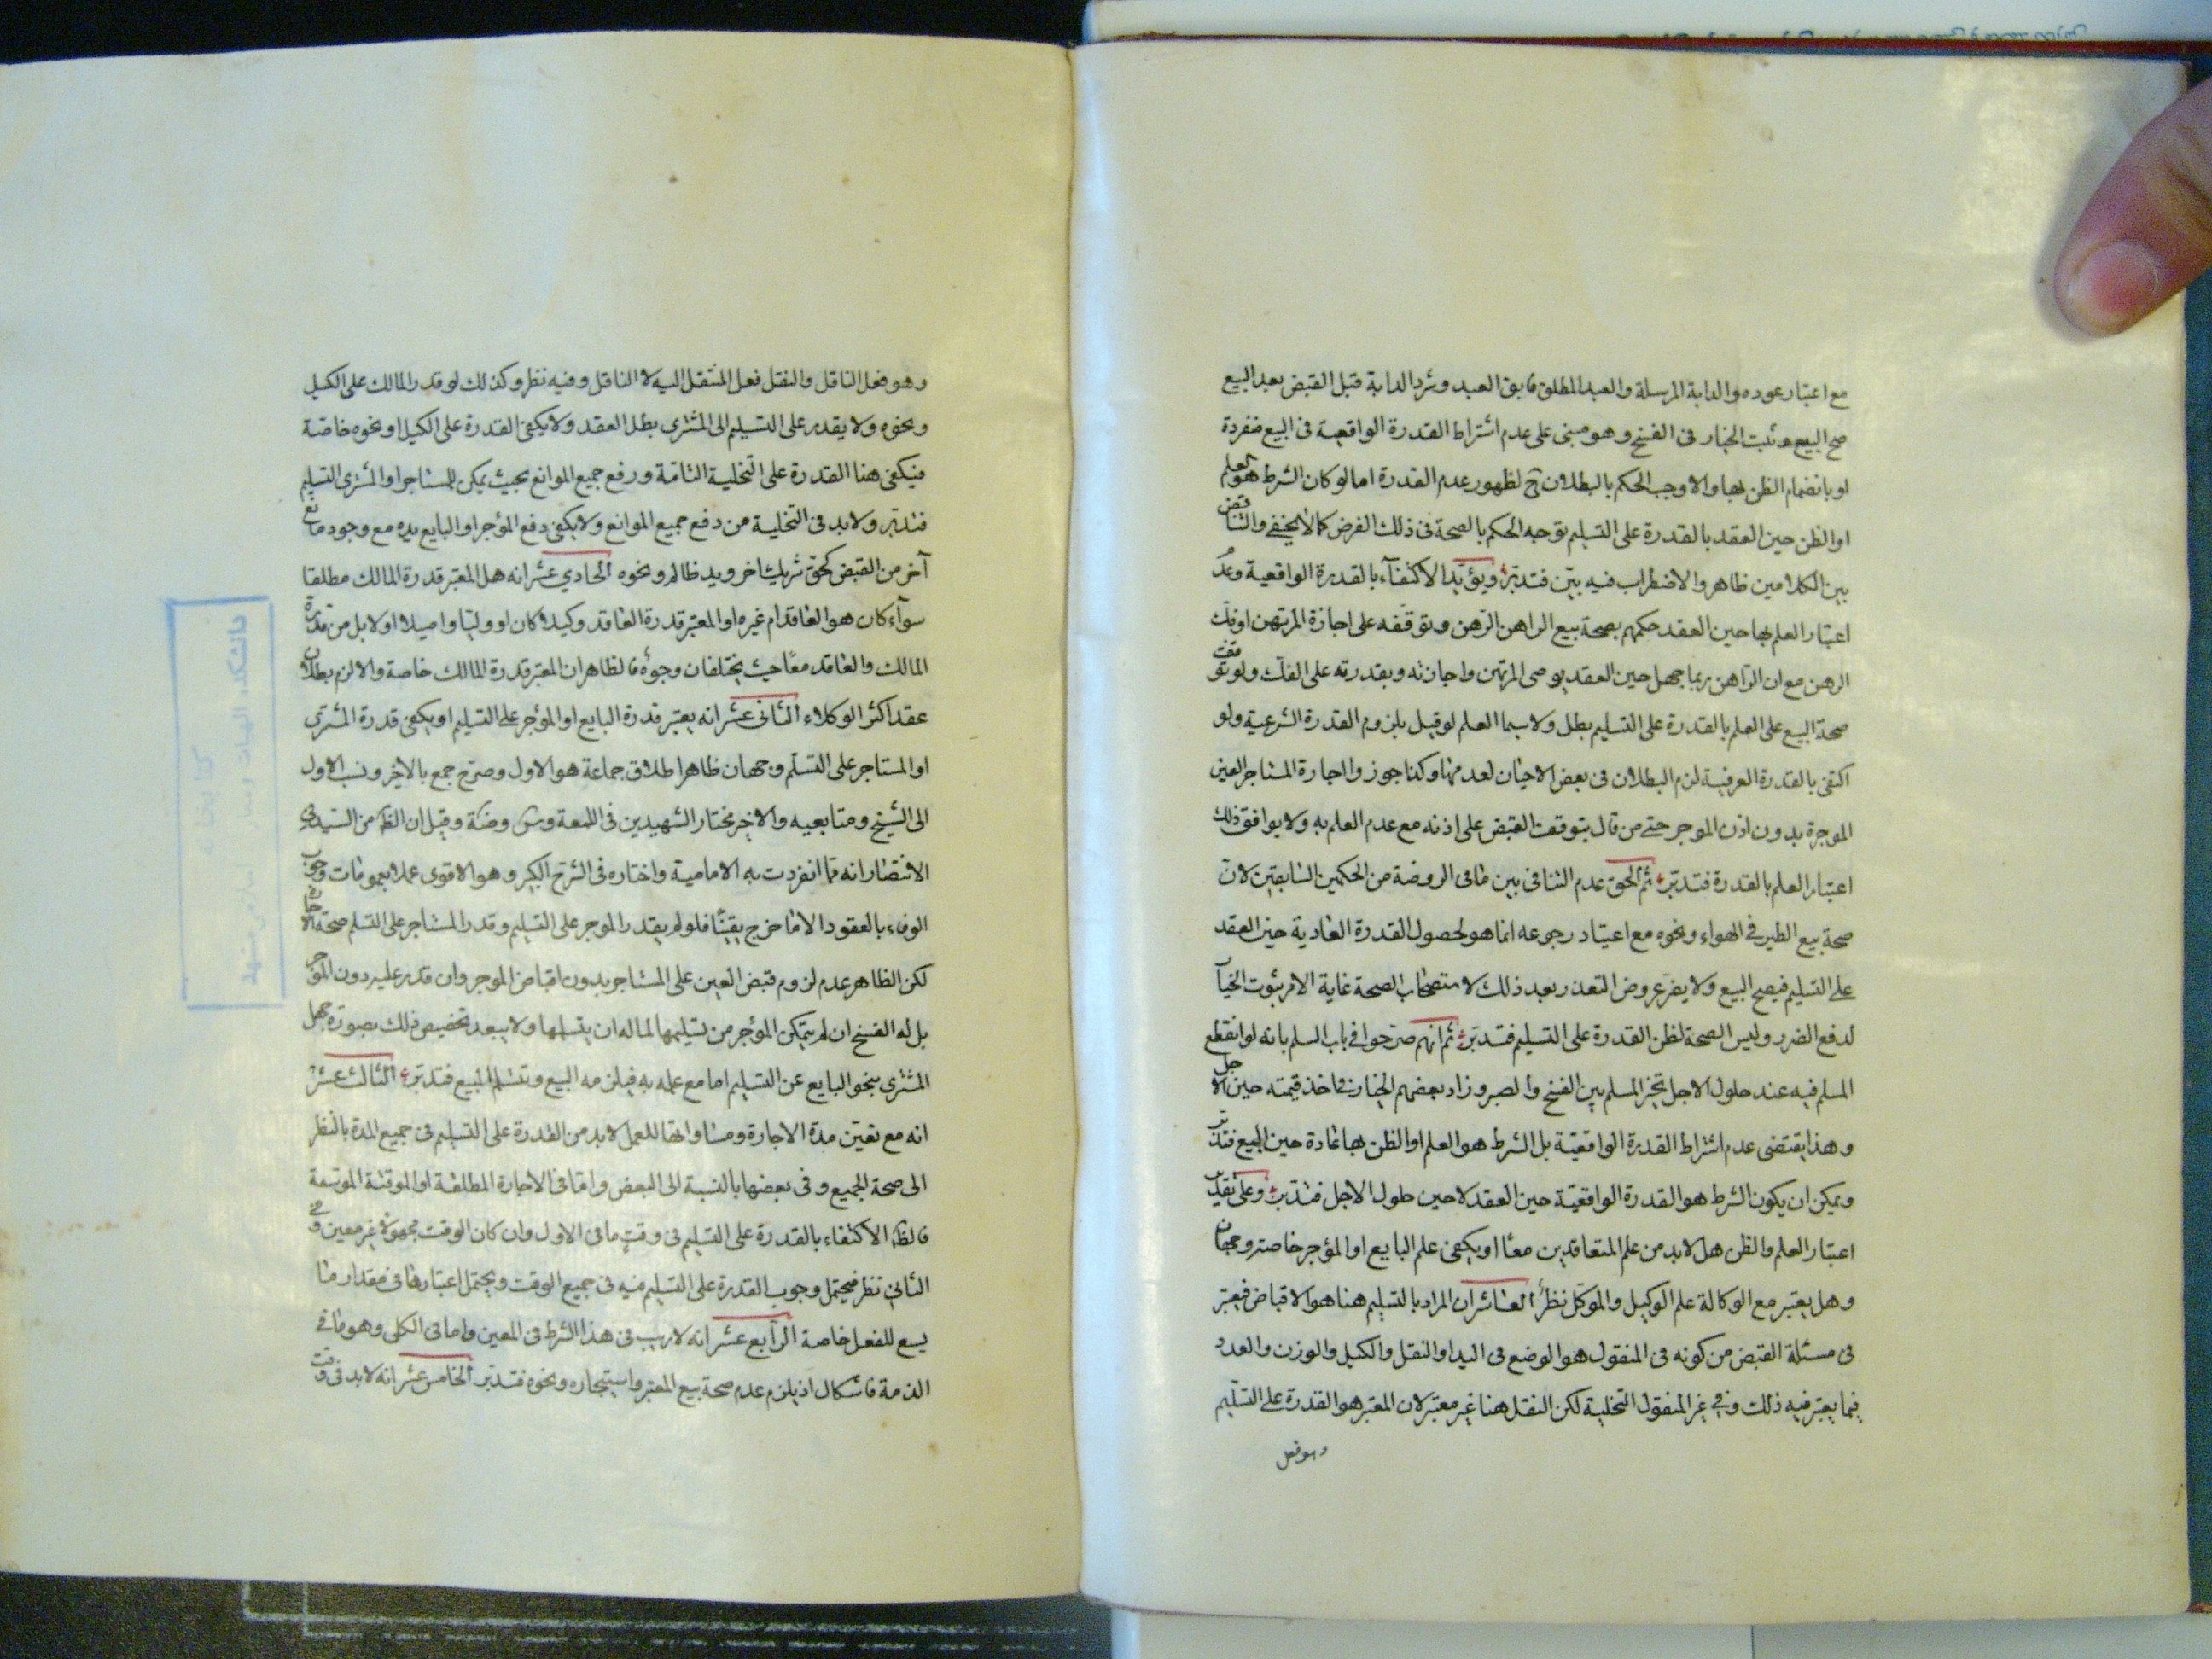 مع اعتبار عوده والدابة المرسلة والعبد المطلق فابق العبد وشرد الدابة قبل القبض بعد البيع
صح البيع وثبت الخيار في الفسخ وهو مبني على عدم اشتراط القدرة الواقعية في البيع منفردة
او بانضمام الظن بها والاوجب الحكم بالبطلان ح لظهور عدم القدرة اما لو كان الشرط هو العلم
او الظن حين العقد بالقدرة على التسليم توجه الحكم بالصحة في ذلك الفرض كما لا يخفى والتناقض
بين الكلامين ظاهر والاضطراب فيه بيّن فتدبر ويؤيد الاكتفاء بالقدرة الواقعية وعدم
اعتبار العلم بها حين العقد حكمهم بصحة بيع الراهن الرهن وتوقفه على اجازة المرتهن او فك
الرهن مع ان الراهن ربما جهل حين العقد برضى المرتهن واجازته وبقدرته على الفك ولو توقفت
صحة البيع على العلم بالقدرة على التسليم بطل ولا سيما العلم لو قيل بلزوم القدرة الشرعية ولو
اكتفى بالقدرة العرفية لزم البطلان في بعض الاحيان لعدمها وكذا جوزوا اجارة المستاجر العين
الموجرة بدون اذن الموجر حتى من قال بتوقف القبض على اذنه مع عدم العلم به ولا يوافق ذلك
اعتبار العلم بالقدرة فتدبر ثم الحق عدم التنافي بين ما في الروضة من الحكمين السابقين لان
صحة بيع الطير في الهواء ونحوه مع اعتياد رجوعه انما هو لحصول القدرة العادية حين العقد
على التسليم فيصح البيع ولا يضر عروض التعذر بعد ذلك لاستصحاب الصحة غاية الامر ثبوت الخيار
لدفع الضرر وليس الصحة لظن القدرة على التسليم فتدبر ثم انهم صرحوا في باب السلم بانه لو انقطع
المسلم فيه عند حلول الاجل تخير المسلم بين الفسخ والصبر وزاد بعضهم الخيار في اخذ قيمته حين الاجل
وهذا يقتضي عدم اشتراط القدرة الواقعية بل الشرط هو العلم او الظن بها عادة حين البيع فتدبر
ويمكن ان يكون الشرط هو القدرة الواقعية حين العقد لا حين حلول الاجل فتدبر وعلى تقدير
اعتبار العلم والظن هل لابد من علم المتعاقدين معا او يكفي علم البايع او المؤجر خاصة وجهان
وهل يعتبر مع الوكالة علم الوكيل والموكل نظر العاشر ان المراد بالتسليم هنا هو الاقباض فيعتبر
في مسئلة القبض من كونه في المنقول هو الوضع في اليد او النقل والكيل والوزن والعدد
فيما يعتبر فيه ذلك وفي غير المنقول التخلية لكن النقل هنا غير معتبر لان المعتبر هو القدرة على التسليم
وهو فعل
وهو فعل الناقل والنقل فعل المنتقل اليه لا الناقل وفيه نظر وكذلك لو قدر المالك على الكيل
ونحوه ولا يقدر على التسليم الى المشترى بطل العقد ولا يكفي القدرة على الكيل او نحوه خاصة
فيكفي هنا القدرة على التخلية التامة ورفع جميع الموانع بحيث يمكن للمستاجر او المشترى التسليم
فتدبر ولابد في التخلية من دفع جميع الموانع ولا يكفي دفع المؤجر او البايع يده مع وجود مانع
آخر من القبض كحق شريك اخر ويد ظالم ونحوه الحادي عشر انه هل المعتبر قدرة المالك مطلقا
سواء كان هو العاقد ام غيره او المعتبر قدرة العاقد وكيلا كان او وليا او اصيلا اولا بل من قدرة
المالك والعاقد معا حيث يختلفان وجوه فالظاهر ان المعتبر قدرة المالك خاصة والالزم بطلان
عقد اكثر الوكلاء الثاني عشر انه يعتبر قدرة البايع او المؤجر على التسليم او يكفي قدرة المشترى
او المستاجر على التسلم وجهان ظاهر اطلاق جماعة هو الاول وصرح جمع بالاخير ونسب الاول
الى الشيخ ومتابعيه والاخير مختار الشهيدين في اللمعة وس وضة وقيل ان الظ من السيد في
الانتصار انه مما انفردت به الامامية واختاره في الشرح الكبير وهو الاقوى عملا بعمومات وجوب
الوفاء بالعقود الا ما خرج يقينا فلو لم يقدر الموجر على التسليم وقدر المستاجر على التسلم صحة الاجارة
لكن الظاهر عدم لزوم قبض العين على المستاجر بدون اقباض الموجر وان قدر عليه دون المؤجر
بل له الفسخ ان لم يتمكن المؤجر من تسليمها لما له ان يتسلمها ولا يبعد تخصيص ذلك بصورة جهل
المشترى بنحو البايع عن التسليم اما مع علمه به فيلزمه البيع وتسلم المبيع فتدبر الثالث عشر
انه مع تعيين مدة الاجارة ومساواتها للعمل لابد من القدرة على التسليم في جميع المدة بالنظر
الى صحة الجميع وفي بعضها بالنسبة الى البعض واما في الاجارة المطلقة او الموقتة الموسعة
فالظ الاكتفاء بالقدرة على التسليم في وقت ما في الاول وان كان الوقت مجهولا غير معين وفي
الثاني نظر فيحتمل وجوب القدرة على التسليم فيه في جميع الوقت ويحتمل اعتبارها في مقدار ما
يسع للفعل خاصة الرابع عشر انه لا ريب في هذا الشرط في المعين واما في الكلي وهو ما في
الذمة فاشكال اذ يلزم عدم صحة بيع المعتبر واستيجاره ونحوه فتدبر الخامس عشر انه لابد في وقت